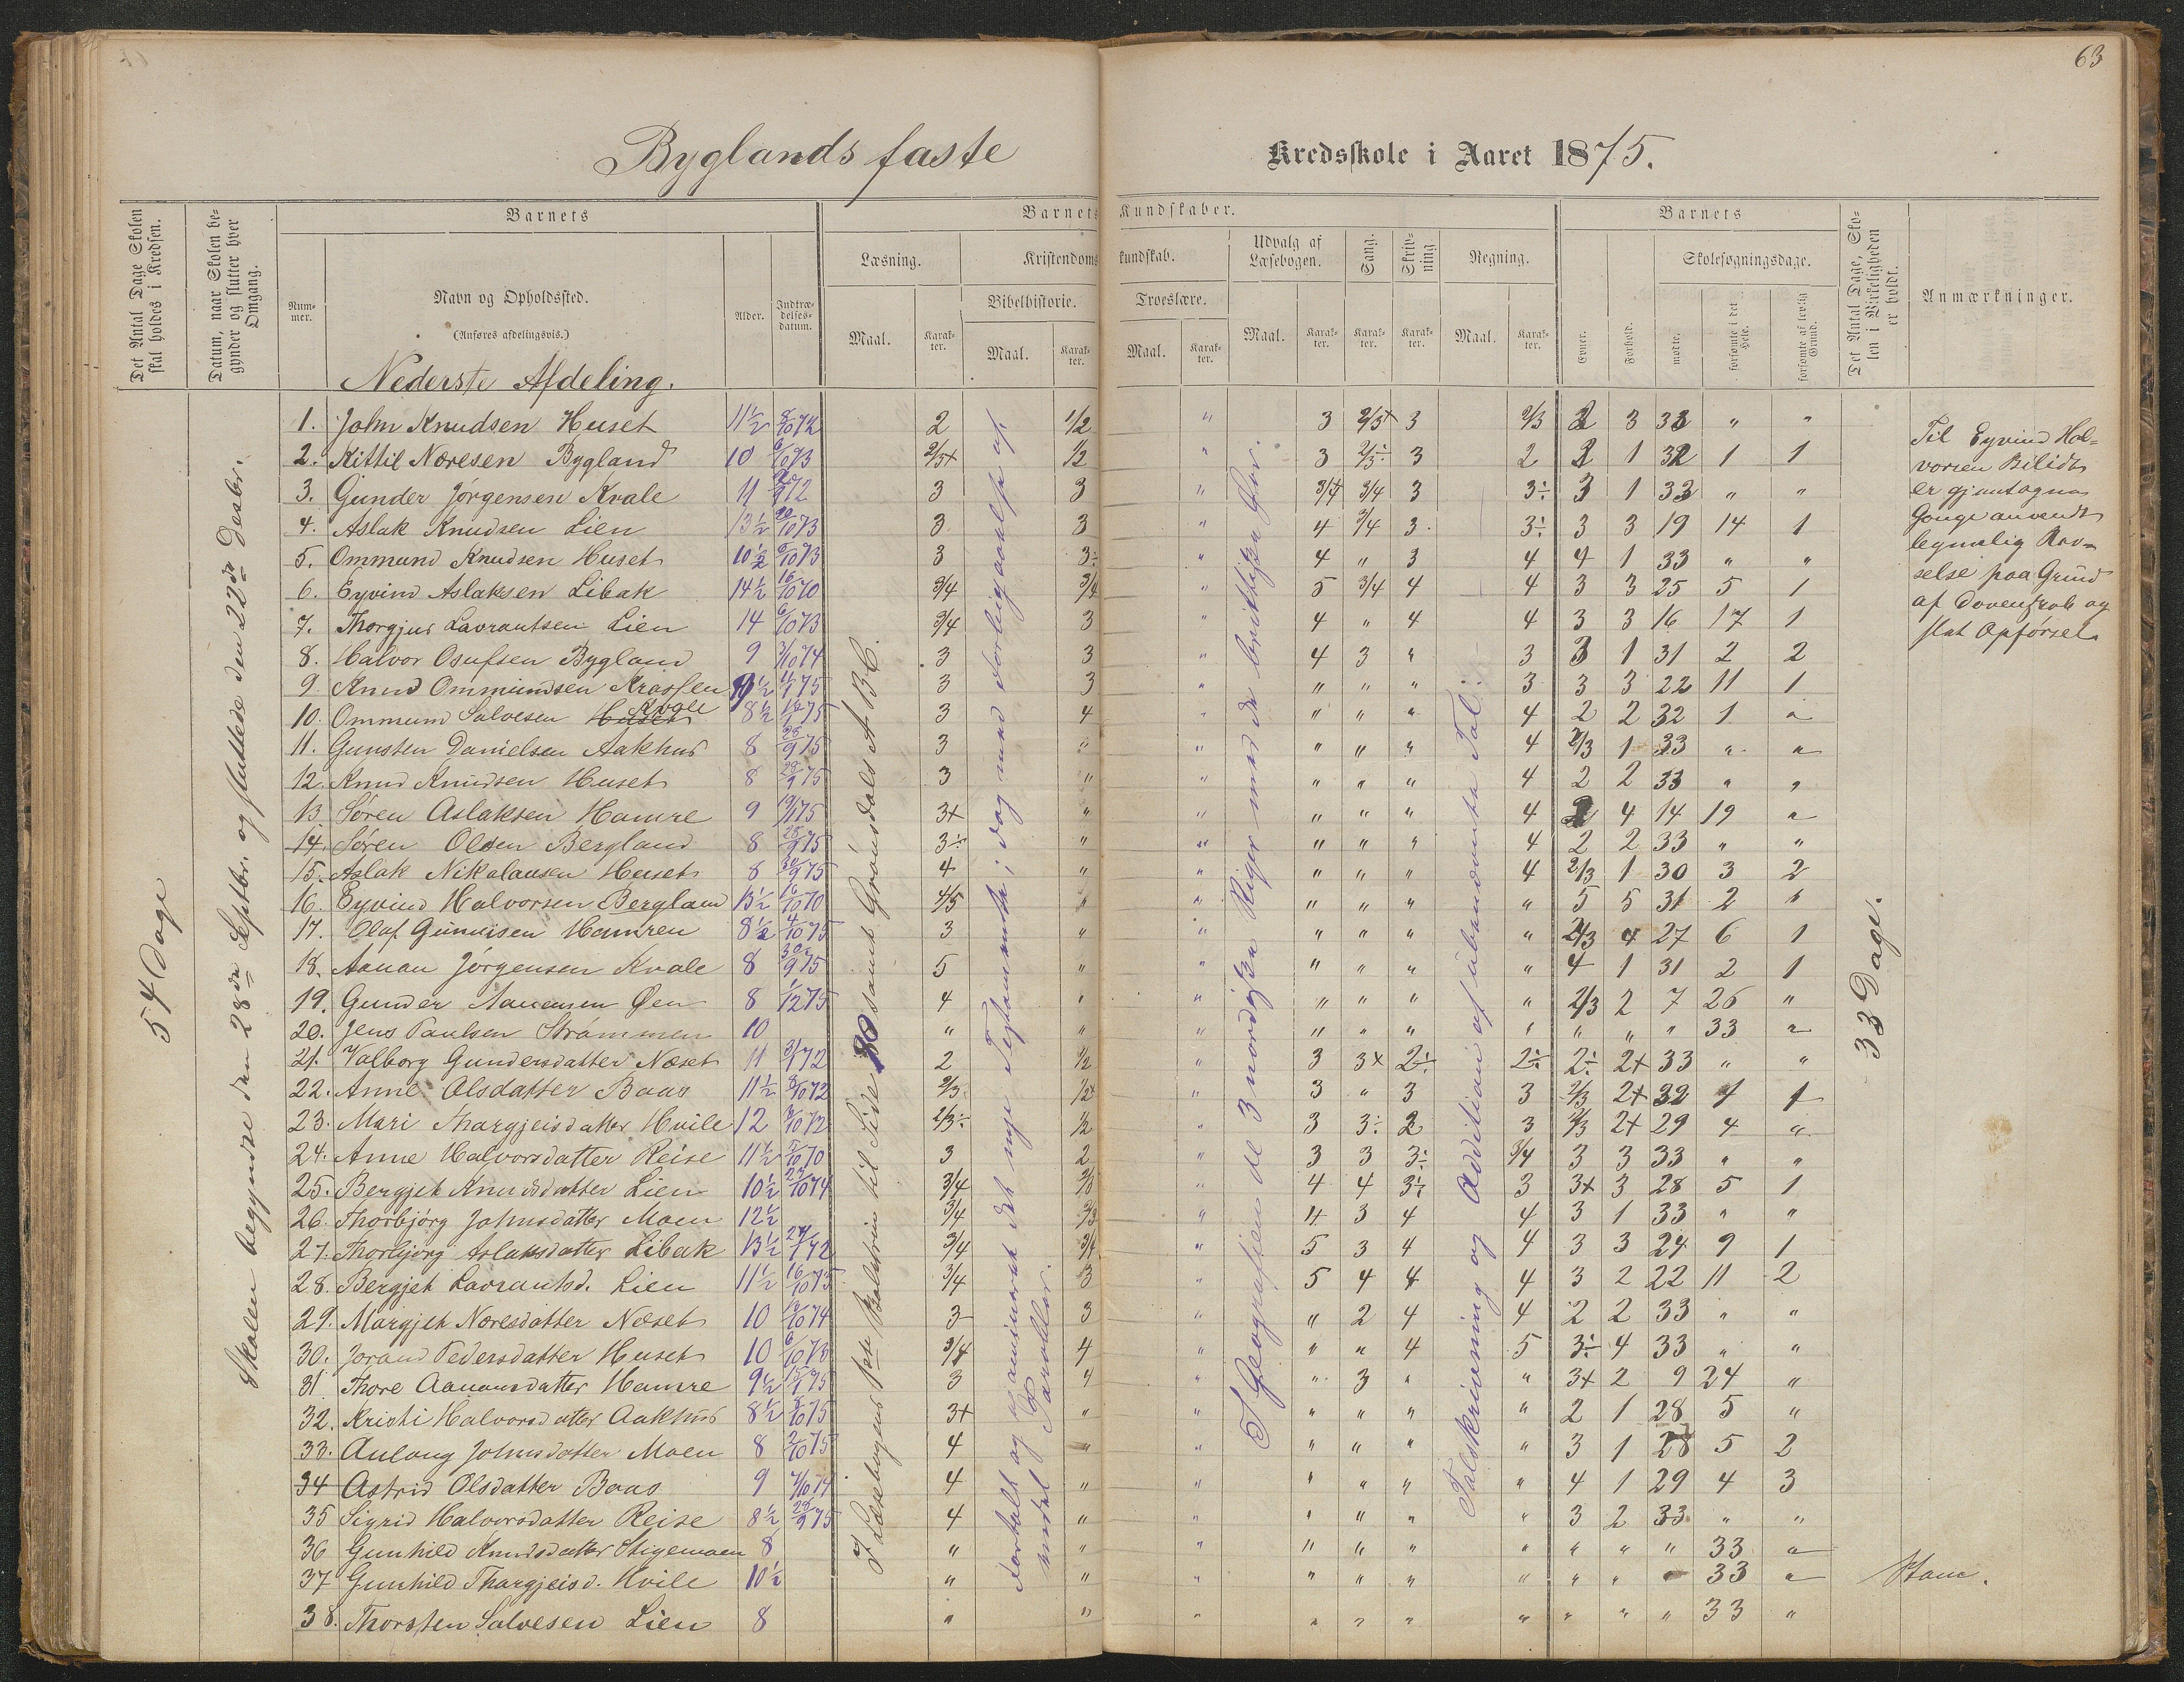 63
Byglands faste Kredsskole i Aaret 1875.
Det Antal Dage Skolen skal holdes i Kredsen.
Datum, naar Skolen begynder og slutter hver Omgang.
Barnets
Num-mer.
Navn og Opholdssted.
(Anføres afdelingsvis.)
Alder.
Indtrædelsesdatum.
Barnets Kundskaber.
Læsning.
Maal.
Karakter.
Kristendomskundskab.
Bibelhistorie.
Maal.
Karakter.
Troeslære.
Maal.
Karakter.
Udvalg af Læsebogen.
Maal.
Karakter.
Sang.
Karakter.
Skrivning
Karakter.
Regning.
Maal.
Karakter.
Barnets
Evner.
Forhold.
Skolesøgningsdage.
mødte.
forsømte i det Hele.
forsømte af lovlig Grund.
Det Antal Dage, Skolen i Virkeligheden er holdt.
Anmærkninger.
Nederste Afdeling.
54 Dage
Skolen begyndte den 28de Septbr. og sluttede den 22de Desbr.
I Læsebogens 1ste Skoletrin til Side 80 samt Grønsdals A B C.
det nye Testamente; i dag med
3 nordiske Riger med de brittiske Øer.
Talskrivning og Addition af ubenævnte Tal.
33 Dage.
1. John Knudsen Huset 11½ 8/10 72 2 1/2 " 3 2/3+ 3 2/3 2 3 33 " "
2. Kittil Noresen Bygland 10 6/10 73 2/3+ 1/2 " 3 2/3÷ 3 2 2 1 32 1 1
3. Gunder Jørgensen Kvale 11 72 3 3 " 3/4 3/4 3 3÷ 3 1 33 " "
4. Aslak Knudsen Lien 13½ 20/10 73 3 3 " 4 3/4 3 3÷ 3 3 19 14 1
5. Ommund Knudsen Huset 10½ 6/10 73 3 3÷ " 4 " 3 4 4 1 33 " "
6. Eyvind Aslaksen Libak 14½ 16/10 70 3/4 3/4 " 5 3/4 4 4 3 3 25 5 1
7. Thorgjus Lavrantsen Lien 14 6/10 73 3/4 3 " 4 " 4 4 3 3 16 17 1
8. Halvor Osufsen Bygland 9 74 3 3 " 4 3 " 3 3 1 31 2 2
9. Knud Ommundsen Krossen 75 3 3 " " " " 3 3 3 22 11 1
10. Ommund Salvesen Huset Kvale 8½ 75 3 4 " " " " 4 2 2 32 1 "
11. Gunsten Danielsen Aakhus 8 28/9 75 3 " " " " " 4 2/3 1 33 " "
12. Knud Knudsen Huset 8 28/9 75 3 " " " " " 4 2 2 33 " "
13 Søren Aslaksen Hamre 9 75 3+ " " " " " 4 2 4 14 19 "
14. Søren Olsen Bergland 8 28/9 75 3÷ " " " " " 4 2 2 33 " "
15. Aslak Nikolausen Huset 8 30/9 75 4 " " " " " 4 2/3 1 30 3 2
16. Eyvind Halvorsen Bergland 13½ 16/10 70 4/5 " " " " " " 5 5 31 2 "
17. Olaf Gundersen Hamren 8½ 4/10 75 3 " " " " " " 2/3 4 27 6 1
18. Aanan Jørgensen Kvale 8 30/9 75 5 " " " " " " 4 1 31 2 1
19. Gunder Aanensen Øen 8 1/12 75 4 " " " " " " 2/3 2 7 26 "
20. Jens Paulsen Strømmen 10 " " " " " " " " " " 33 "
21. Valborg Gundersdatter Næset 11 72 2 1/2 " 3 3+ 2÷ 2÷ 2÷ 2+ 33 " "
22. Anne Olsdatter Baas 11½ 8/10 72 2/3 1/2+ " 3 " 3 3 2/3 2+ 32 1 1
23. Mari Thargjeisdatter Hvile 12 72 2/3÷ 1/2 " 3 3÷ 2 3 2/3 2+ 29 4 "
24. Anne Halvorsdatter Reise 11½ 70 3 2 " 3 3 3÷ 3/4 3 3 33 " "
25. Bergjet Knudsdatter Lien 10½ 74 3/4 2/3 " 4 4 3÷ 3 3+ 3 28 5 1
26. Thorbjørg Johnsdatter Moen 12½ 3/4 2/3 " 4 3 4 4 3 1 33 " "
27. Thorbjørg Aslaksdatter Libak 13½ 72 3/4 3/4 " 5 3 4 4 3 3 24 9 1
28. Bergjet Lavrantsd. Lien 11½ 16/10 73 3/4 3 " 5 4 4 4 3 2 22 11 2
29. Margjet Noresdatter Næset 10 74 3 3 " " 2 4 4 2 2 33 " "
30. Jorand Pedersdatter Huset 10 6/10 73 3/4 4 " " " 4 5 3÷ 4 33 " "
31 Thore Aanansdatter Hamre 9½ 75 3 4 " " 3 " " 3+ 2 9 24 "
32. Kristi Halvorsdatter Aakhus 8½ 75 3+ " " " " " " 2 1 28 5 "
33. Aulaug Johnsdatter Moen 8 2/10 75 4 " " " " " " 3 1 28 5 2
34 Astrid Olsdatter Baas 9 74 4 " " " " " " 4 1 29 4 3
35 Sigrid Halvorsdatter Reise 8½ 28/9 75 4 " " " " " " 3 2 33 " "
36 Gunhild Knudsdatter Stigemoen 8 " " " " " " " " " " 33 "
37 Gunhild Thargjeisd. Hvile 10½ " " " " " " " " " " 33 "
38. Thorsten Salvesen Lien 8 " " " " " " " " " " 33 "
Til Eyvind Hal-
vorsen
er gjentagne
Gange anvendt
legemlig Rev-
selse paa Grund
af Dovenskab og
slet Opførsel.